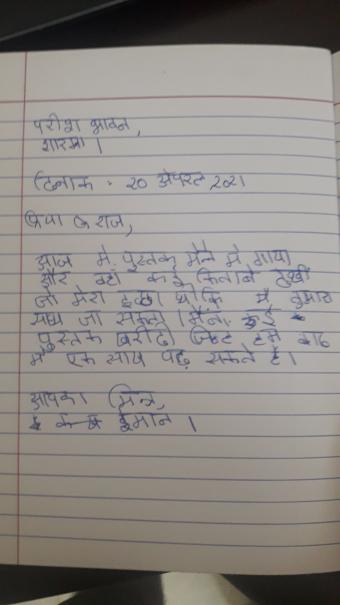 परीक्षा भवन,
शारजा ।
दिनाक : २० अगस्त, २०२१
प्रिया राज,
आज मे पुस्तक मैले मे गाया
और वहाँ कई किताबे देखी
जो मेरा इच्छा थी कि मैं तुम्हारे
साथ जा सकता । मैंने कई
पुस्तक खरीदी जिन्हे हम बाद
में एक साथ पढ़ सकते हैं।
आपका मित्र,
ईमान ।